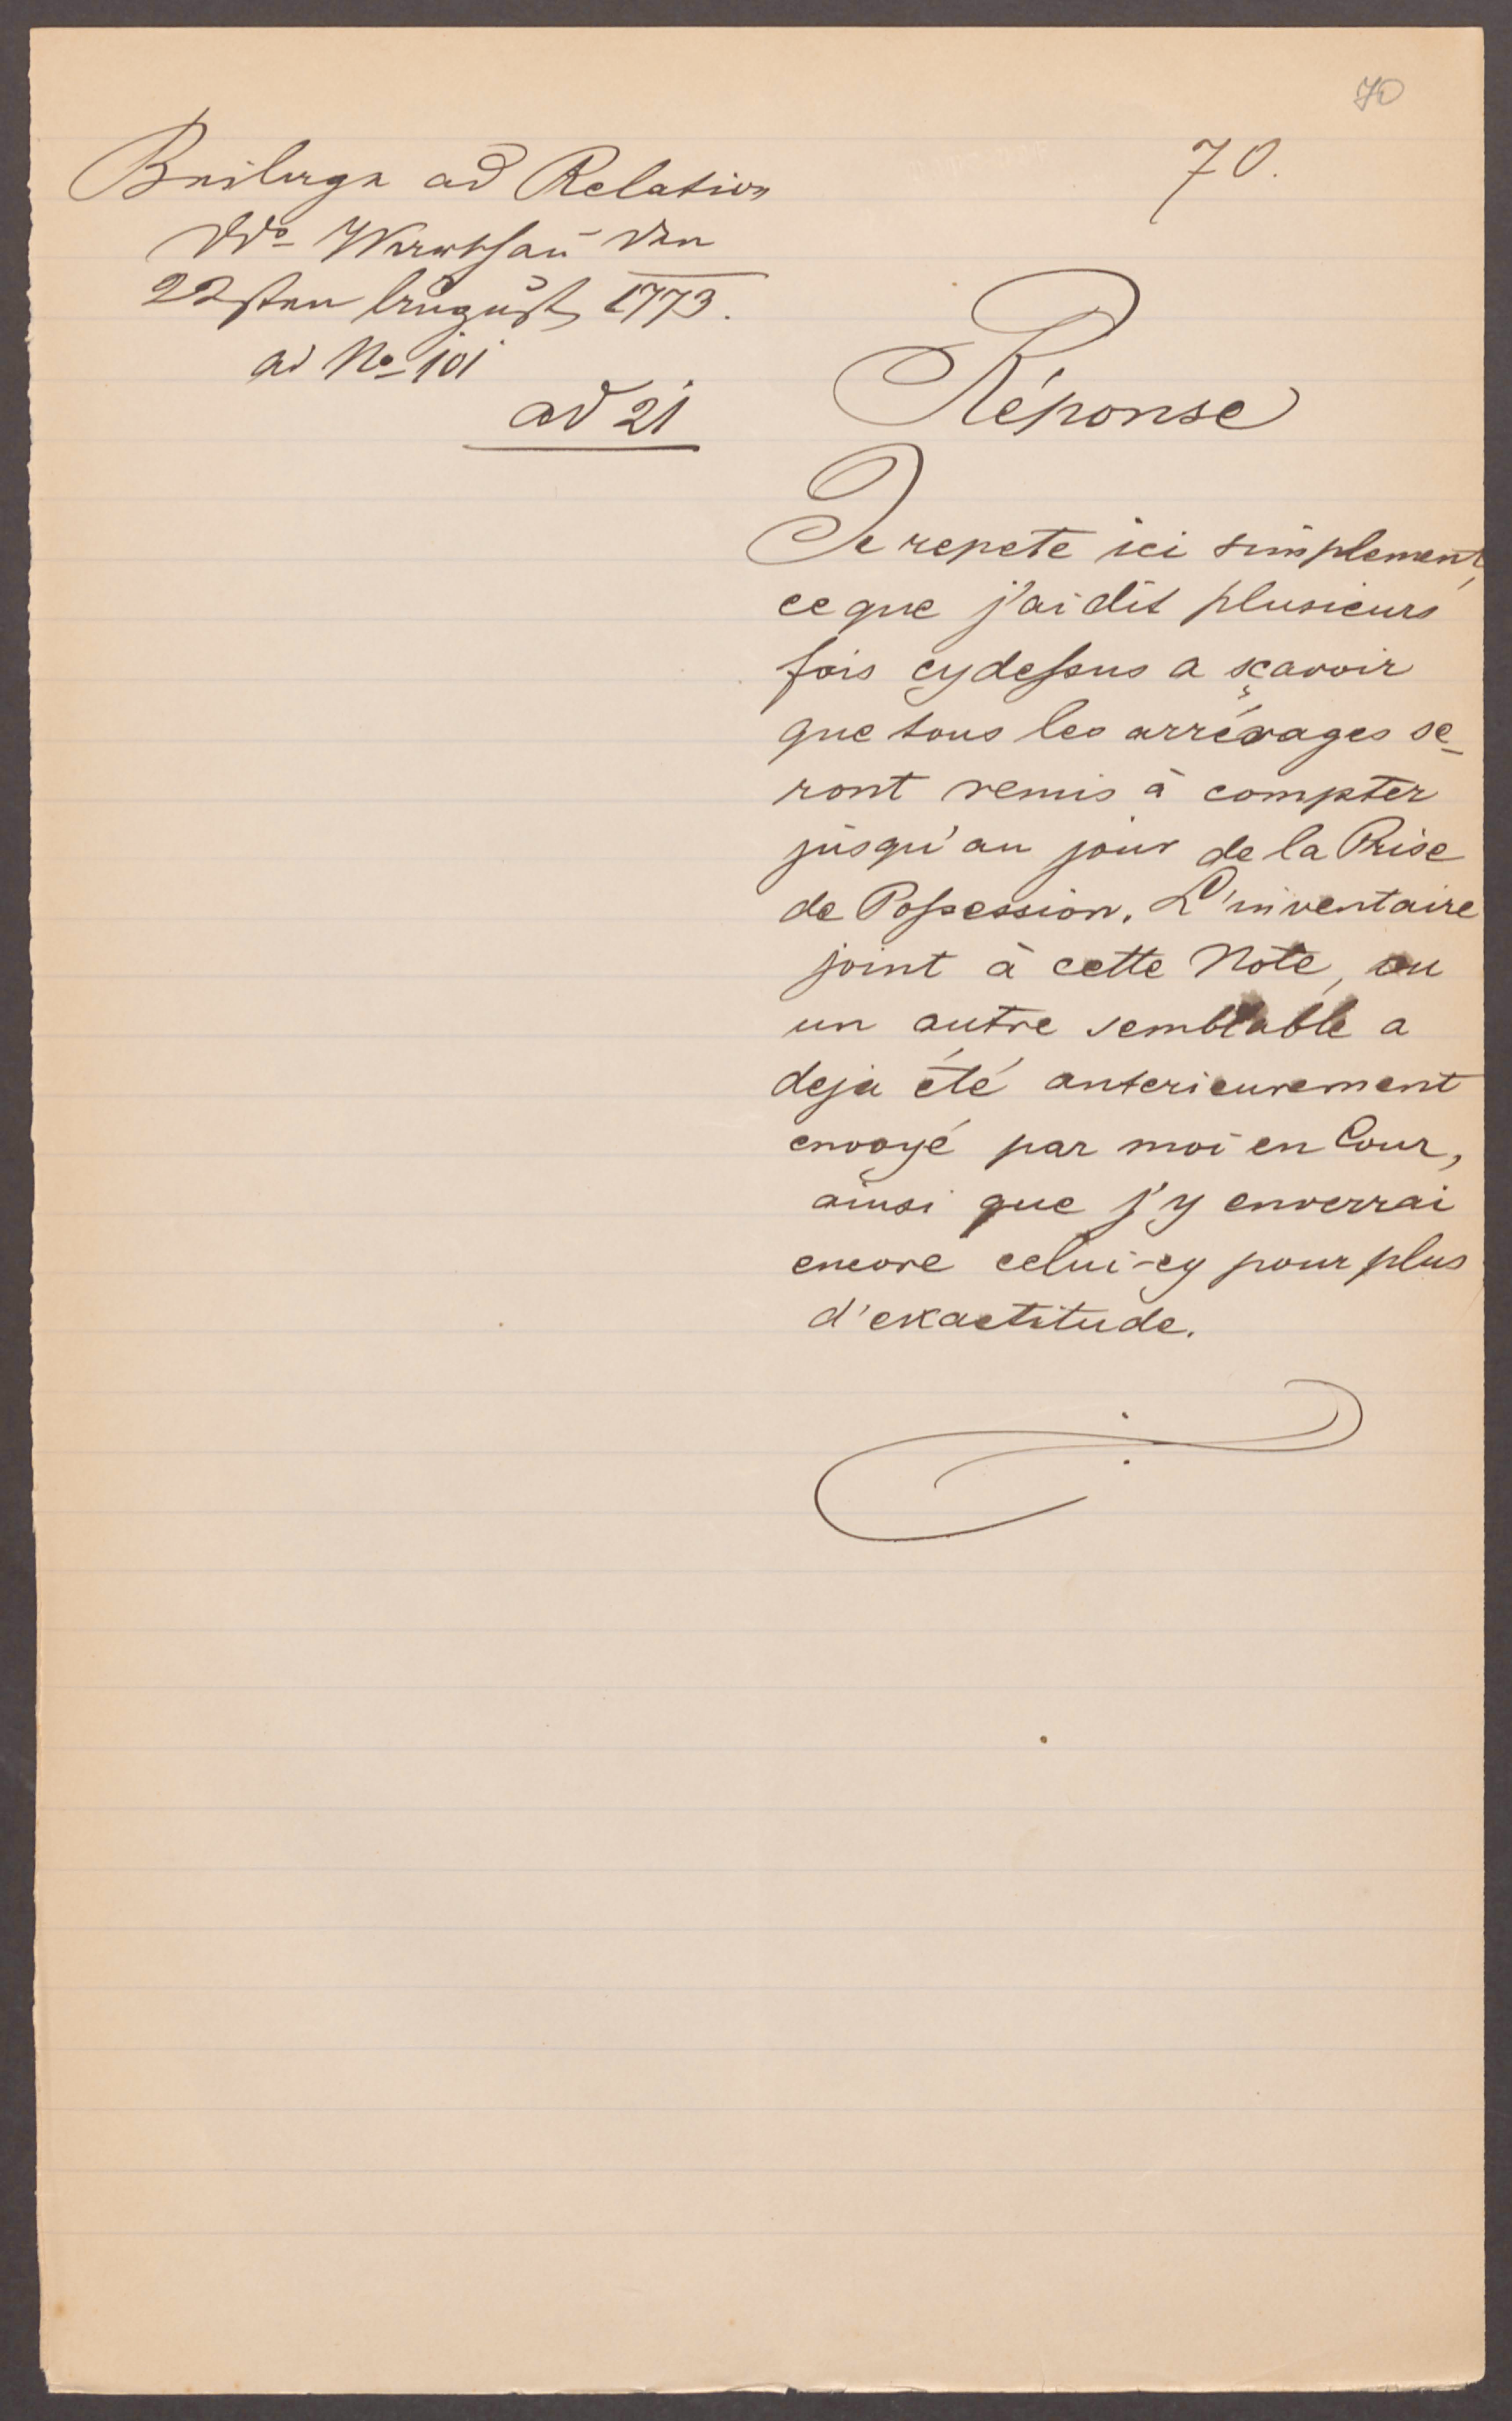 70
70.
Beilage ad Relation
ddo Warschau den
22sten August 1773.
ad No 101
ad 21
Réponse
Je repete ici simplement,
ce que j'ai dit plusieurs
fois cydessus a sçavoir
que tous les arrérages se-
ront remis à compter
jusqu'au jour de la Prise
de Possession. L'inventaire
joint à cette Note, ou
un autre semblable a
deja été anterieurement
envoyé par moi en Cour,
ainsi que j'y enverrai
encore celui-cy pour plus
d'exactitude.